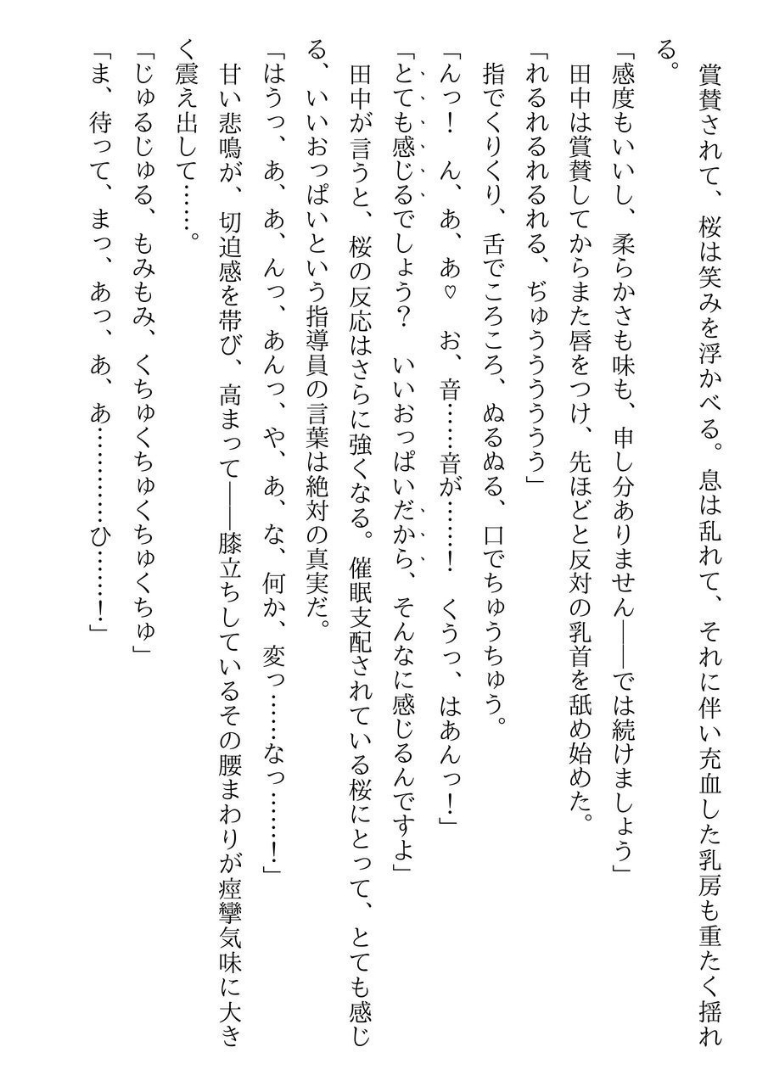 賞賛されて、桜は笑みを浮かべる。息は乱れて、それに伴い充血した乳房も重たく揺れ
る。
「感度もいいし、柔らかさも味も、申し分ありません――では続けましょう」
　田中は賞賛してからまた唇をつけ、先ほどと反対の乳首を舐め始めた。
「れるれるれるれる、ぢゅうううううう」
　指でくりくり、舌でころころ、ぬるぬる、口でちゅうちゅう。
「んっ！　ん、あ、あ♡　お、音……音が……！　くうっ、はあんっ！」
「とても感じるでしょう？　いいおっぱいだから、そんなに感じるんですよ」
　田中が言うと、桜の反応はさらに強くなる。催眠支配されている桜にとって、とても感じ
る、いいおっぱいという指導員の言葉は絶対の真実だ。
「はうっ、あ、あ、んっ、あんっ、や、あ、な、何か、変っ……なっ……！」
　甘い悲鳴が、切迫感を帯び、高まって――膝立ちしているその腰まわりが痙攣気味に大き
く震え出して……。
「じゅるじゅる、もみもみ、くちゅくちゅくちゅくちゅ」
「ま、待って、まっ、あっ、あ、あ…………ひ……！」